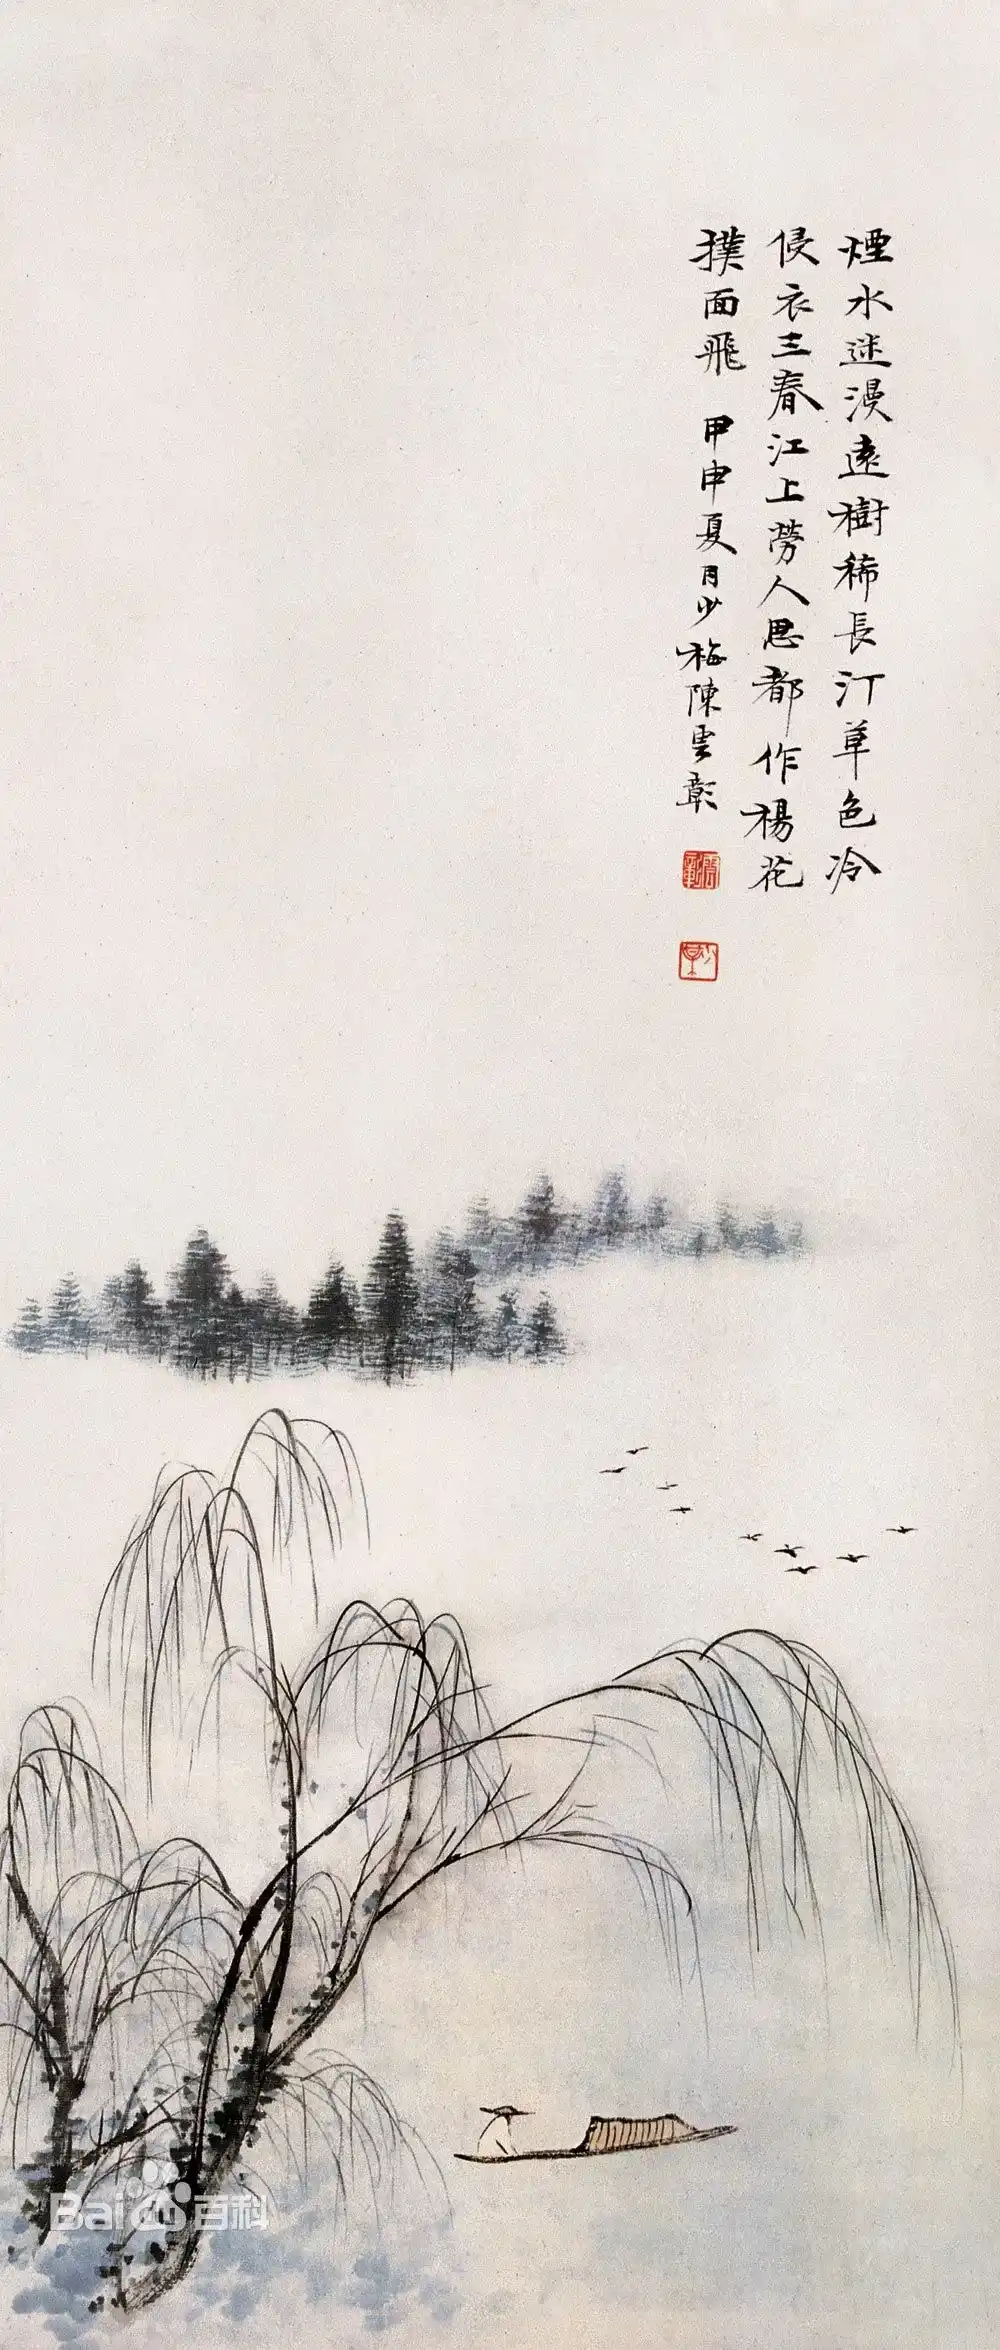 煙水迷漫遠樹稀長汀草色冷
侵衣三春江上勞人思都作楊花
撲面飛 甲申夏月少梅陳雲彰
雲彰
少某
Bai百科